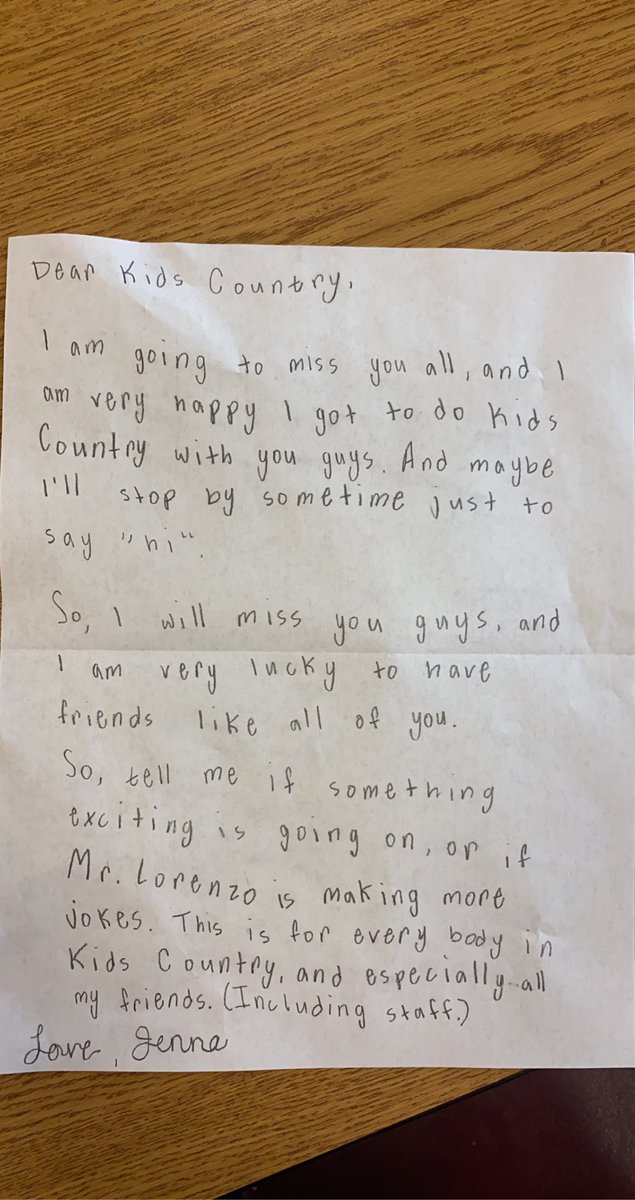 Dear Kids Country,
I am going to miss you all, and I
am very happy I got to do Kids
Country with you guys. And maybe
I'll stop by sometime just to
say "hi".
So, I will miss you guys, and
I am very lucky to have
friends like all of you.
So, tell me if something
exciting is going on, or if
Mr. Lorenzo is making more
jokes. This is for every body in
Kids Country, and especially all
my friends. (Including staff.)
Love, Jenna